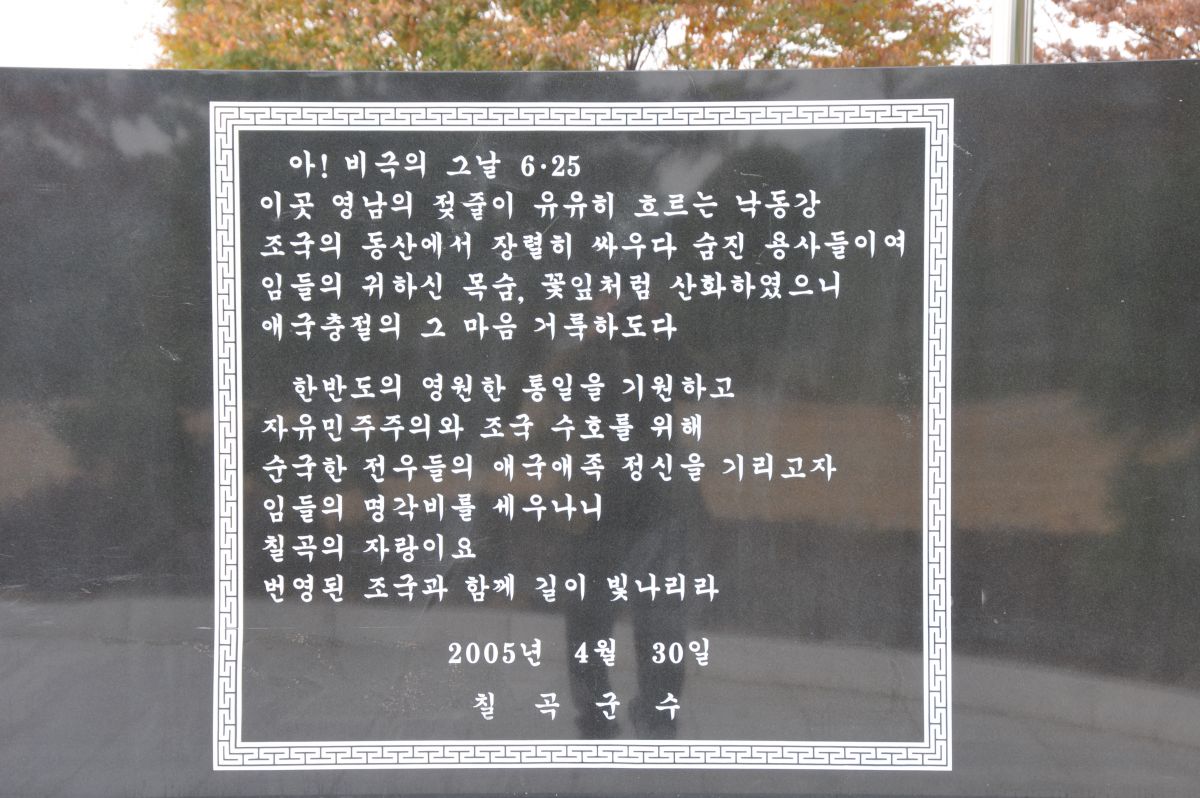 아! 비극의 그날 6·25
이곳 영남의 젖줄이 유유히 흐르는 낙동강
조국의 동산에서 장렬히 싸우다 숨진 용사들이여
임들의 귀하신 목숨, 꽃잎처럼 산화하였으니
애국충절의 그 마음 거룩하도다
한반도의 영원한 통일을 기원하고
자유민주주의와 조국 수호를 위해
순국한 전우들의 애국애족 정신을 기리고자
임들의 명각비를 세우나니
칠곡의 자랑이요
번영된 조국과 함께 길이 빛나리라
2005년 4월 30일
칠 곡 군 수